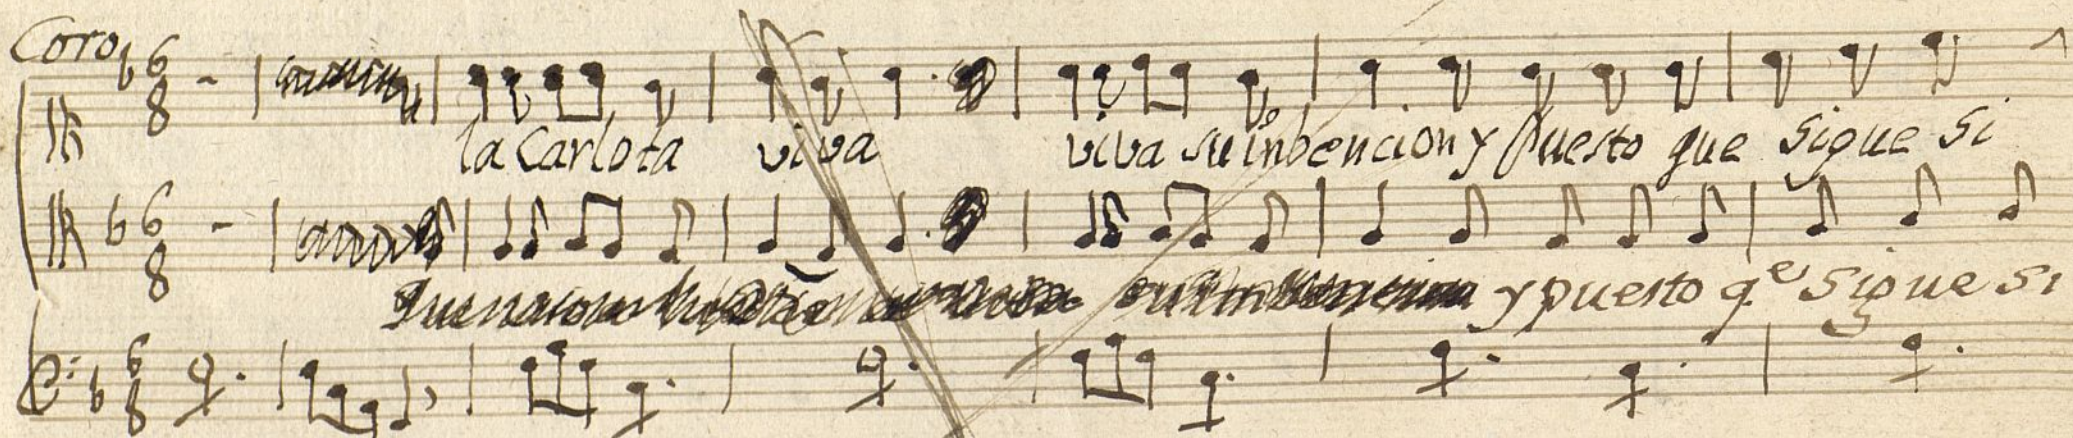 Coro
la Carlota viva viva su inbencion y puesto que sigue si
y puesto qe sigue si